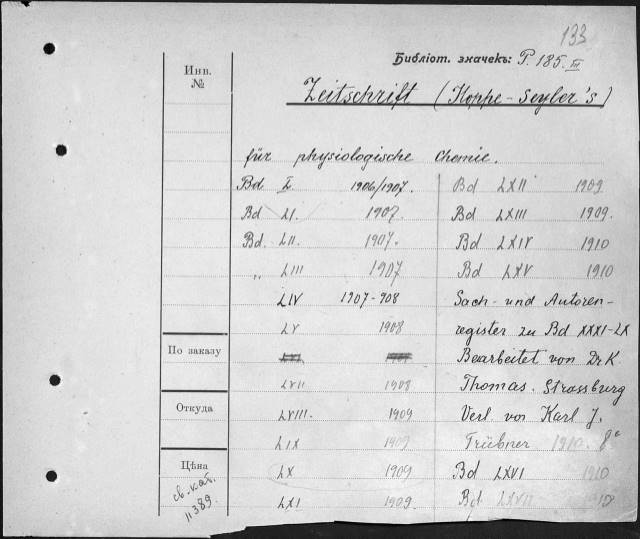 133
Библіот. значекъ: P. 185. III
Инв.
№
Zeitschrift (Hoppe-Seyler's)
für physiologische Chemie.
Bd L. 1906/1907.
Bd LI. 1907.
Bd. LII. 1907.
„ LIII 1907
LIV 1907-908
LV 1908
LVII 1908
LVIII. 1909
LIX 1909
LX 1909
LXI 1909.
Bd LXII 1909
Bd LXIII 1909.
Bd LXIV 1910
Bd LXV 1910
Sach- und Autoren-
register zu Bd XXXI-LX
Bearbeitet von Dr K
Thomas. Strassburg
Verl. von Karl J.
Trübner 1910. 8°
Bd LXVI 1910
Bd LXVII 1910
По заказу
Откуда
Цѣна
св. кат.
11389.